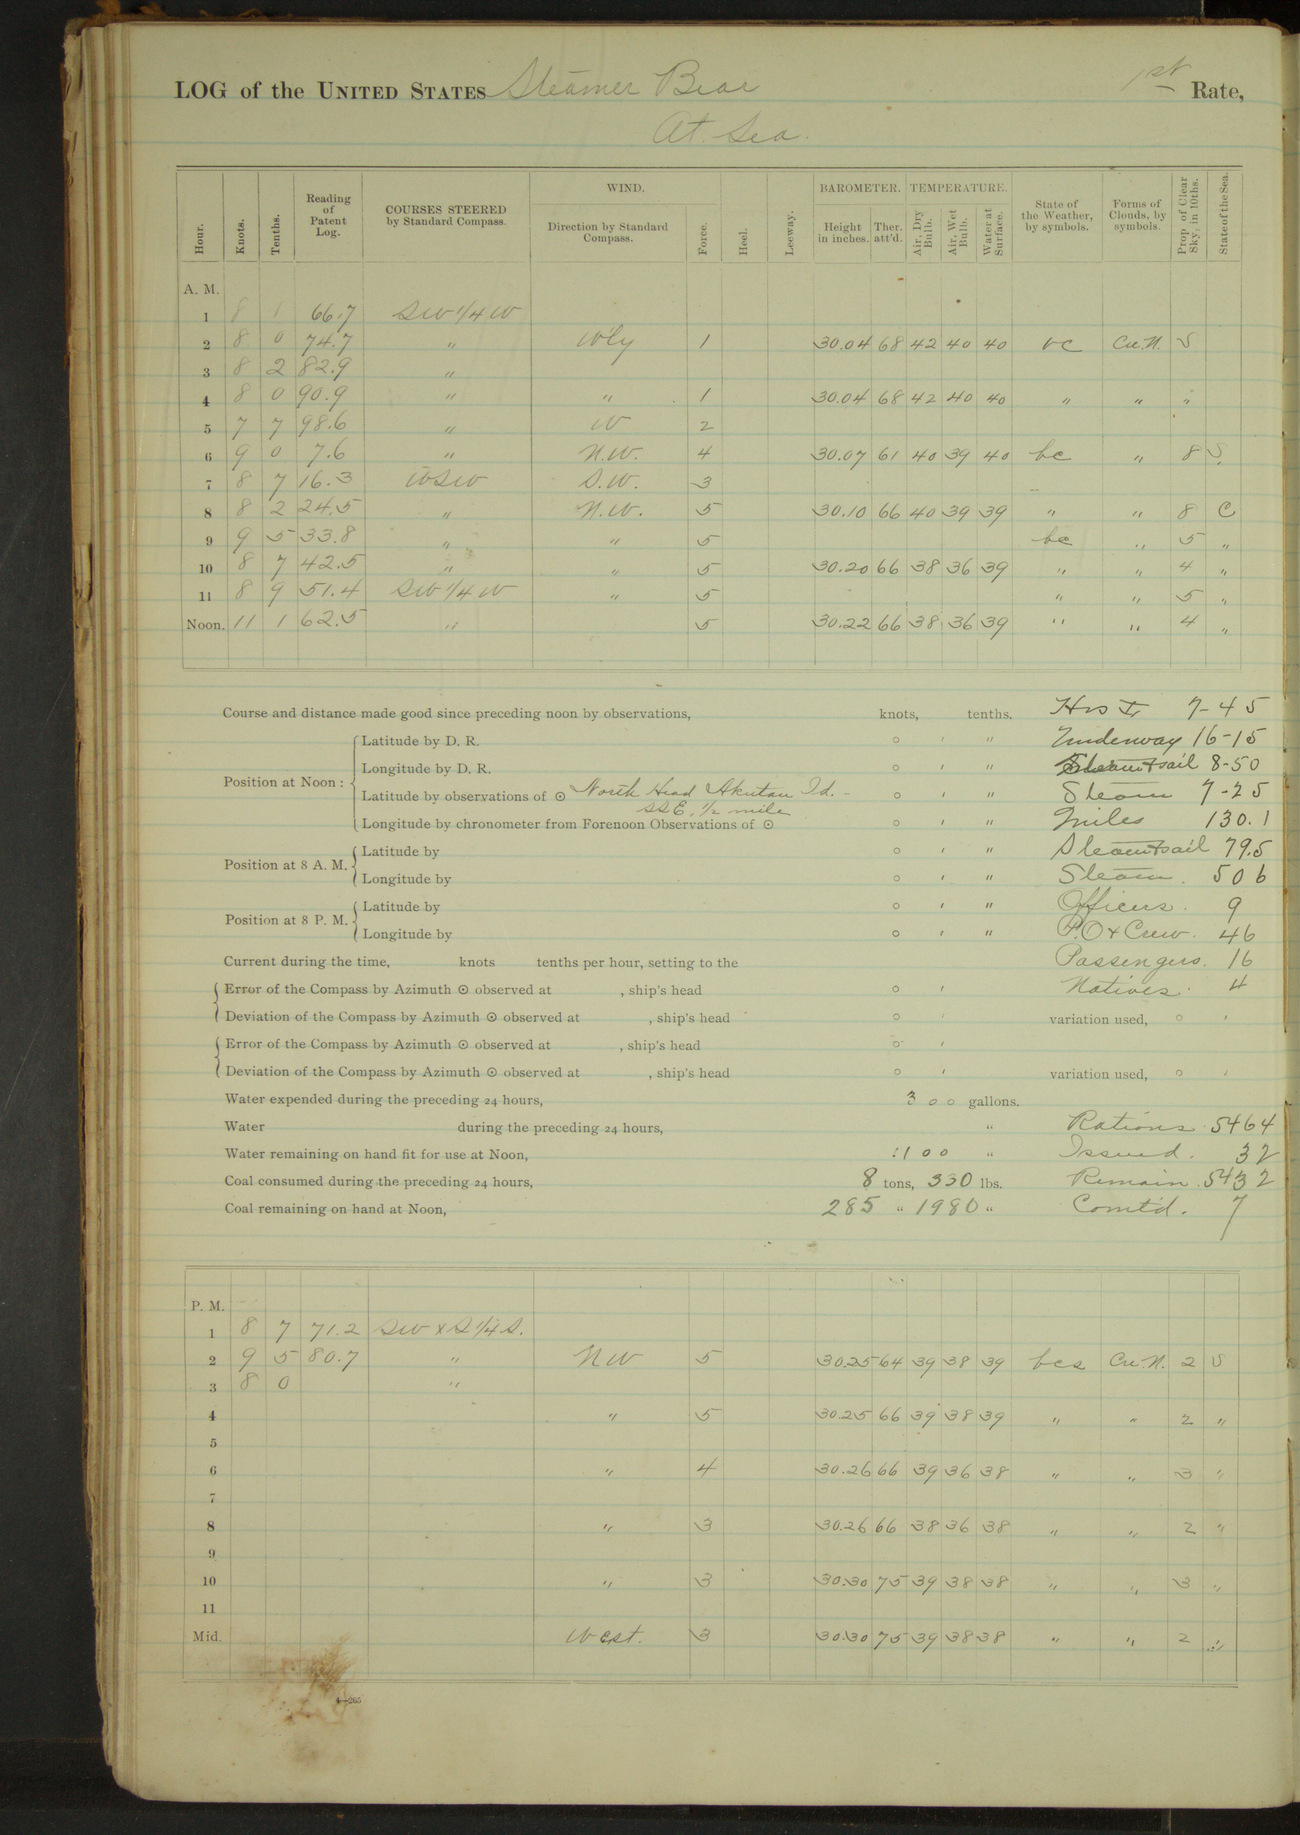 LOG of the UNITED STATES Steamer Bear 1st Rate,
At Sea.
Hour. Knots. Tenths. Reading of Patent Log. COURSES STEERED by Standard Compass. WIND. Direction by Standard Compass. Force. Heel. Leeway. BAROMETER. Height in inches. Ther. att'd. TEMPERATURE. Air, Dry Bulb. Air, Wet Bulb. Water at Surface. State of the Weather, by symbols. Forms of Clouds, by symbols. Prop of Clear Sky, in 10ths. State of the Sea.
A. M.
1 8 1 66.7 SW 1/4 W
2 8 0 74.7 " W'ly 1 30.04 68 42 40 40 oc Cu.N. S
3 8 2 82.9 "
4 8 0 90.9 " " 1 30.04 68 42 40 40 " " "
5 7 7 98.6 " W 2
6 9 0 7.6 " N.W. 4 30.07 61 40 39 40 bc " 8 S
7 8 7 16.3 WSW S.W. 3
8 8 2 24.5 " N.W. 5 30.10 66 40 39 39 " " 8 C
9 9 5 33.8 " " 5 bc " 5 "
10 8 7 42.5 " " 5 30.20 66 38 36 39 " " 4 "
11 8 9 51.4 SW 1/4 W " 5 " " 5 "
Noon. 11 1 62.5 " 5 30.22 66 38 36 39 " " 4 "
Course and distance made good since preceding noon by observations, knots, tenths. Hrs 7-45
Position at Noon: Latitude by D. R. ° ' " Underway 16-15
Longitude by D. R. ° ' " Steam & sail 8-50
Latitude by observations of ☉ North Head Akutan Id. - ° ' " Steam 7-25
SSE, 1/2 mile
Longitude by chronometer from Forenoon Observations of ☉ ° ' " Miles 130.1
Position at 8 A. M. Latitude by ° ' " Steam & sail 79.5
Longitude by ° ' " Steam. 50 6
Position at 8 P. M. Latitude by ° ' " Officers. 9
Longitude by ° ' " P.O & Crew. 46
Current during the time, knots tenths per hour, setting to the Passengers. 16
Error of the Compass by Azimuth ☉ observed at , ship's head ° ' Natives. 4
Deviation of the Compass by Azimuth ☉ observed at , ship's head ° ' variation used, ° '
Error of the Compass by Azimuth ☉ observed at , ship's head ° '
Deviation of the Compass by Azimuth ☉ observed at , ship's head ° ' variation used, ° '
Water expended during the preceding 24 hours, 300 gallons.
Water during the preceding 24 hours, " Rations 5464
Water remaining on hand fit for use at Noon, 1100 " Issued. 32
Coal consumed during the preceding 24 hours, 8 tons, 330 lbs. Remain. 5432
Coal remaining on hand at Noon, 285 " 1980 " Comt'd. 7
P. M.
1 8 7 71.2 SW x S 1/4 S.
2 9 5 80.7 " NW 5 30.25 64 39 38 39 bcs Cu.N. 2 S
3 8 0 "
4 " 5 30.25 66 39 38 39 " " 2 "
5
6 " 4 30.26 66 39 36 38 " " 3 "
7
8 " 3 30.26 66 38 36 38 " " 2 "
9
10 " 3 30.30 75 39 38 38 " " 3 "
11
Mid. West. 3 30.30 75 39 38 38 " " 2 "
4—265